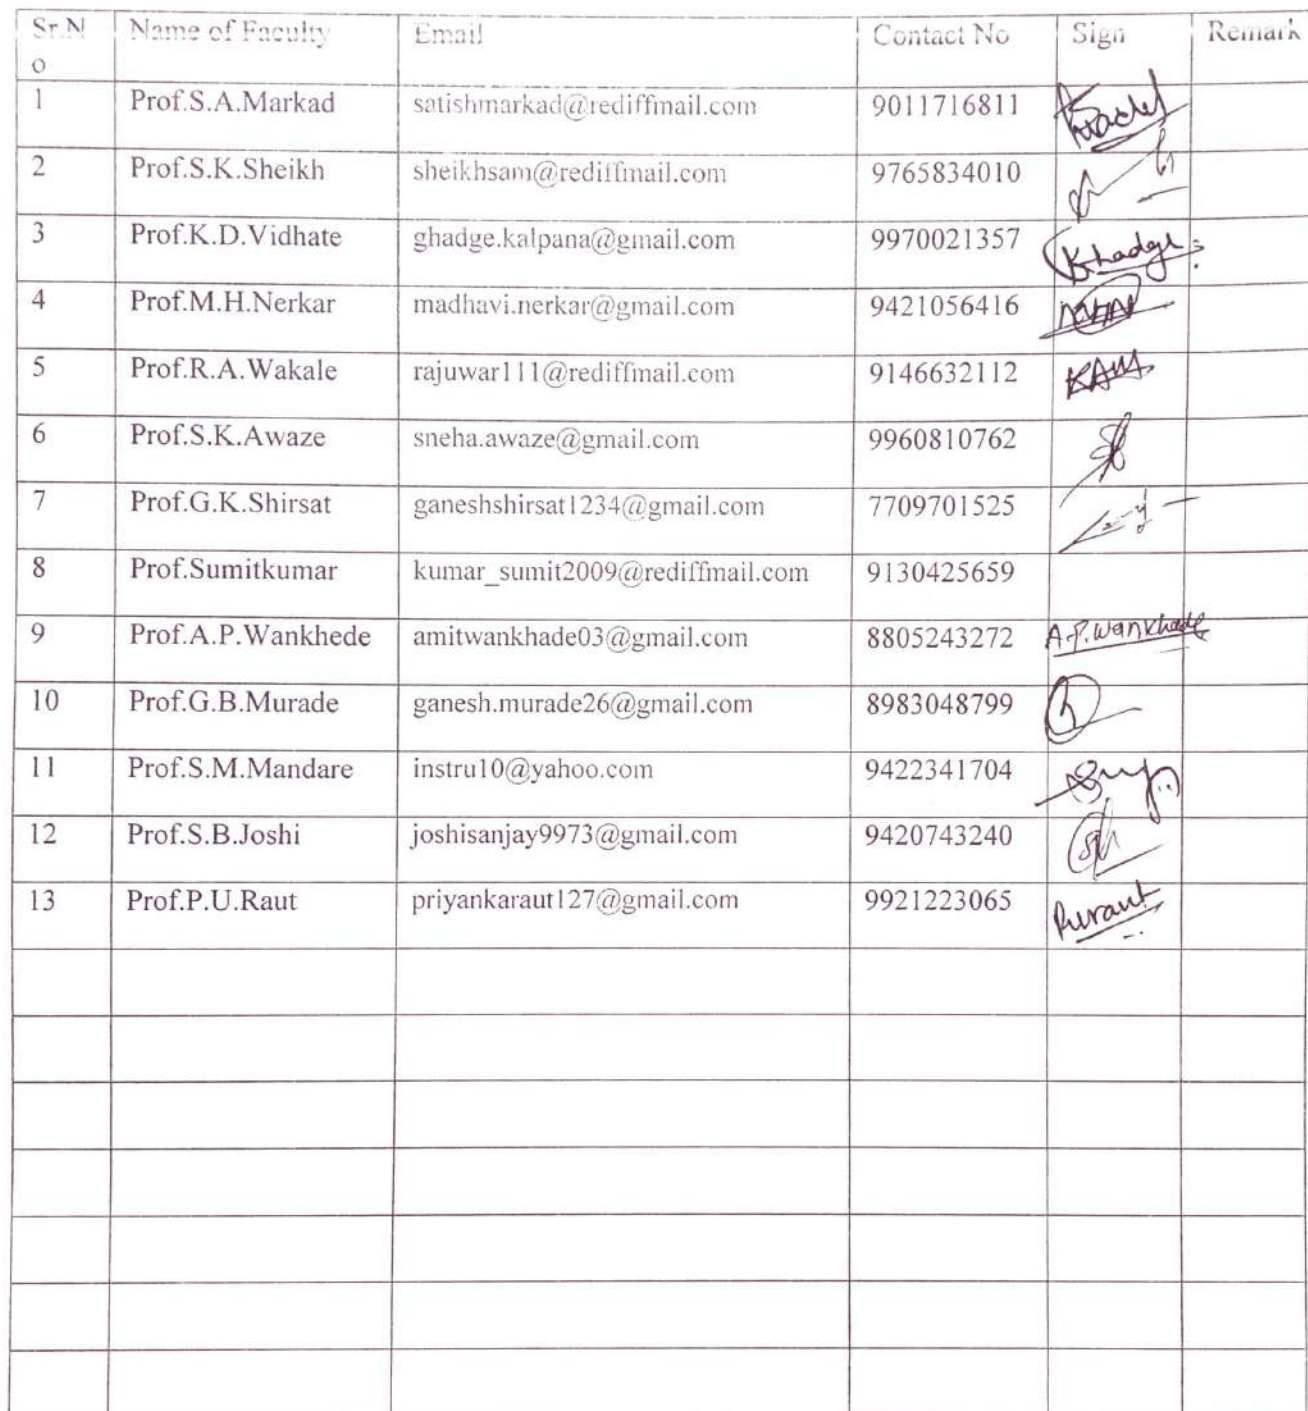 Sr.N Name of Faculty Email Contact No Sign Remark
o
1 Prof.S.A.Markad satishmarkad@rediffmail.com 9011716811
2 Prof.S.K.Sheikh sheikhsam@rediffmail.com 9765834010
3 Prof.K.D.Vidhate ghadge.kalpana@gmail.com 9970021357 Khadge
4 Prof.M.H.Nerkar madhavi.nerkar@gmail.com 9421056416
5 Prof.R.A.Wakale rajuwar111@rediffmail.com 9146632112
6 Prof.S.K.Awaze sneha.awaze@gmail.com 9960810762
7 Prof.G.K.Shirsat ganeshshirsat1234@gmail.com 7709701525
8 Prof.Sumitkumar kumar_sumit2009@rediffmail.com 9130425659
9 Prof.A.P.Wankhede amitwankhade03@gmail.com 8805243272 A.P.Wankhade
10 Prof.G.B.Murade ganesh.murade26@gmail.com 8983048799
11 Prof.S.M.Mandare instru10@yahoo.com 9422341704
12 Prof.S.B.Joshi joshisanjay9973@gmail.com 9420743240
13 Prof.P.U.Raut priyankaraut127@gmail.com 9921223065 Puraut